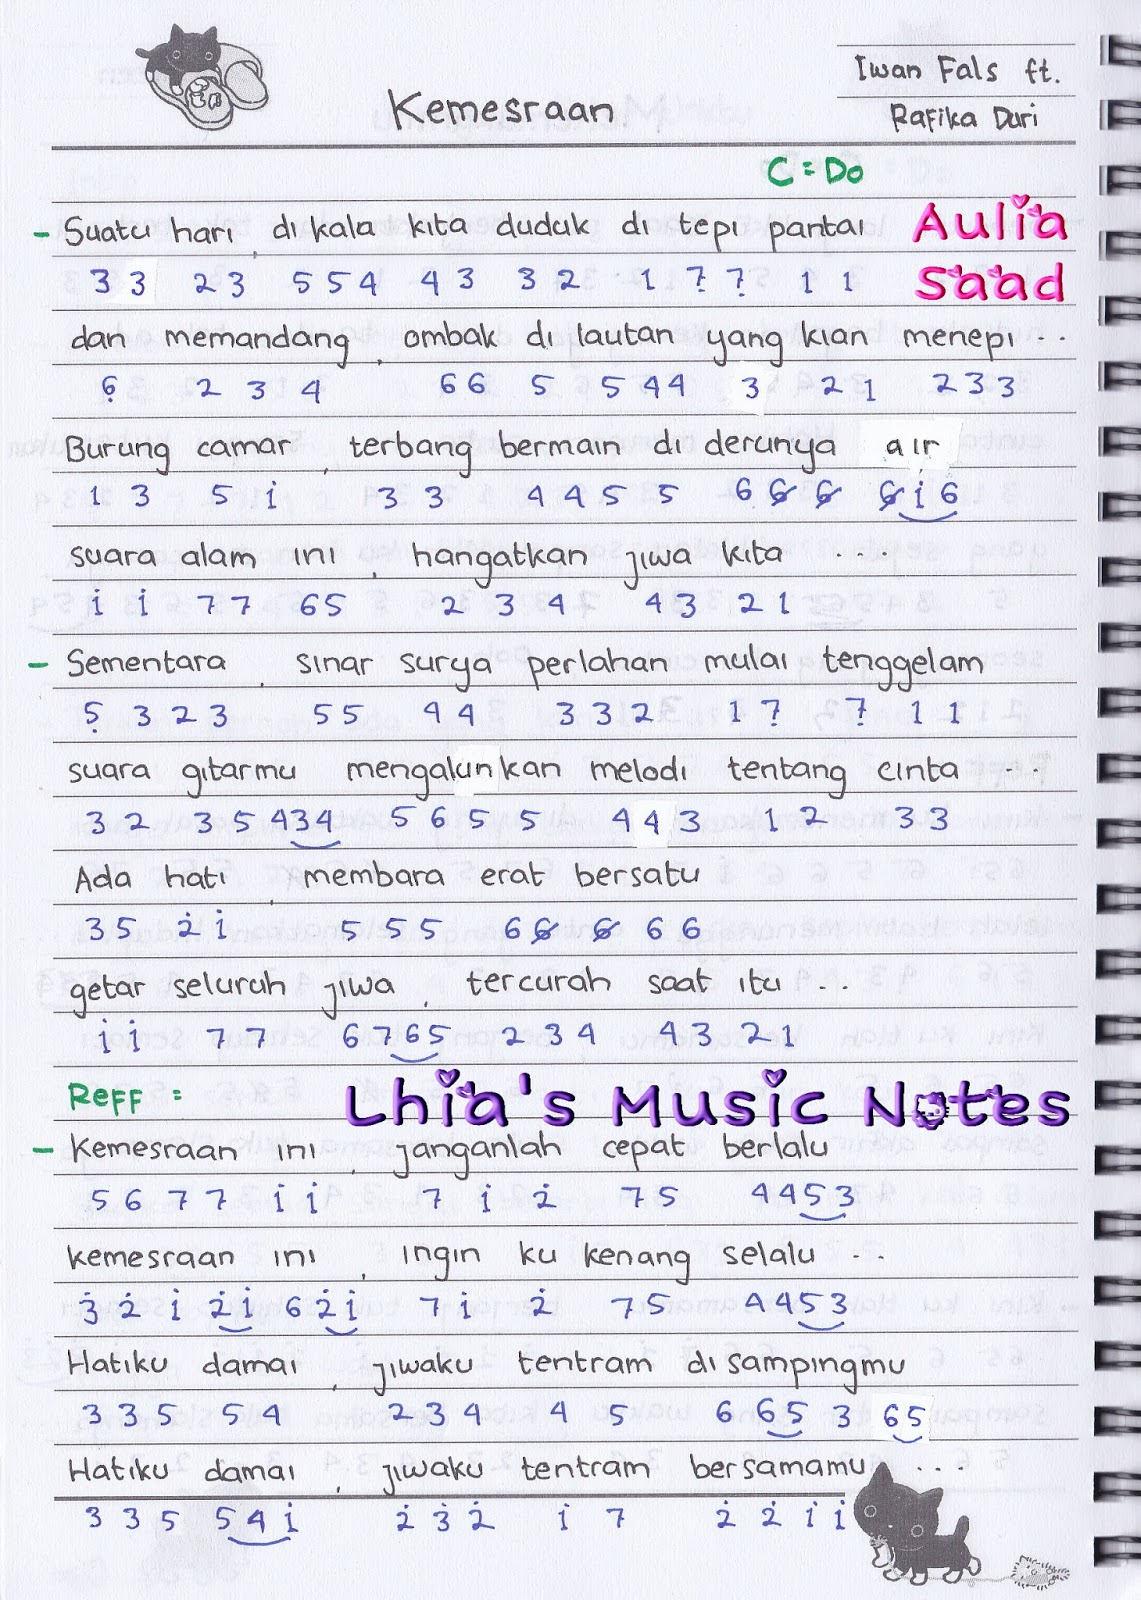 Iwan Fals ft.
Kemesraan
Rafika Duri
C = Do
Aulia Saad
- Suatu hari, dikala kita duduk di tepi pantai
3 3 2 3 5 5 4 4 3 3 2 1 7̣ 7̣ 1 1
dan memandang, ombak di lautan yang kian menepi ...
6̣ 2 3 4 6 6 5 5 4 4 3 2 1 2 3 3
Burung camar, terbang bermain di derunya air
1 3 5 i 3 3 4 4 5 5 6 6̸ 6̸ 6̸ i 6
suara alam ini, hangatkan jiwa kita ...
i i 7 7 6 5 2 3 4 4 3 2 1
- Sementara, sinar surya perlahan mulai tenggelam
5̣ 3 2 3 5 5 4 4 3 3 2 1 7̣ 7̣ 1 1
suara gitarmu mengalunkan melodi tentang cinta ...
3 2 3 5 4 3 4 5 6 5 5 4 4 3 1 2 3 3
Ada hati, membara erat bersatu
3 5 2̇ i 5 5 5 6 6̸ 6̸ 6 6
getar seluruh jiwa, tercurah saat itu ...
i i 7 7 6 7 6 5 2 3 4 4 3 2 1
Reff :
Lhia's Music Notes
- Kemesraan ini, janganlah cepat berlalu
5 6 7 7 i i 7 i 2̇ 7 5 4 4 5 3
kemesraan ini, ingin ku kenang selalu ...
3̇ 2̇ i 2̇ i 6 2̇ i 7 i 2̇ 7 5 4 4 5 3
Hatiku damai, jiwaku tentram di sampingmu
3 3 5 5 4 2 3 4 4 5 6 6 5 3 6 5
Hatiku damai, jiwaku tentram bersamamu ...
3 3 5 5 4 i 2̇ 3̇ 2̇ i 7 2̇ 2̇ i i